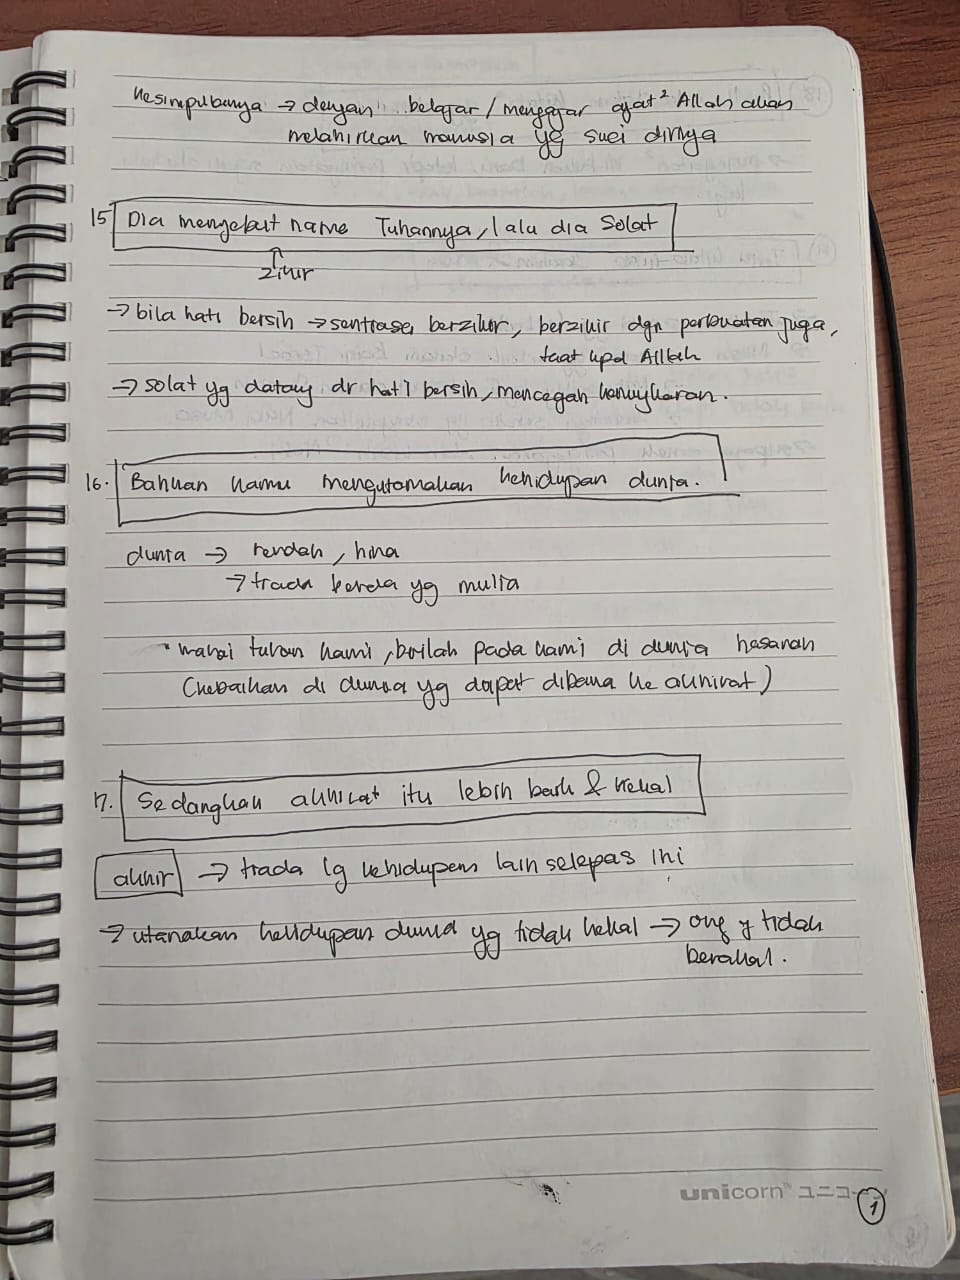 Kesimpulannya → dengan belajar/mengajar ayat² Allah akan
melahirkan manusia yg suci dirinya
15 Dia menyebut nama Tuhannya, lalu dia Solat
Zikir
→ bila hati bersih → sentiasa berzikir, berzikir dgn perbuatan juga,
taat kpd Allah
→ solat yg datang dr hati bersih, mencegah kemungkaran.
16. Bahkan kamu mengutamakan kehidupan dunia.
dunia → rendah, hina
→ tiada benda yg mulia
" wahai tuhan kami, brilah pada kami di dunia hasanah
(kebaikan di dunia yg dapat dibawa ke akhirat)
17. Sedangkan akhirat itu lebih baik & kekal
akhir → tiada lg kehidupan lain selepas ini
→ utamakan kehidupan dunia yg tidak kekal → org y tidak
berakal.
unicorn ユニコーン
1